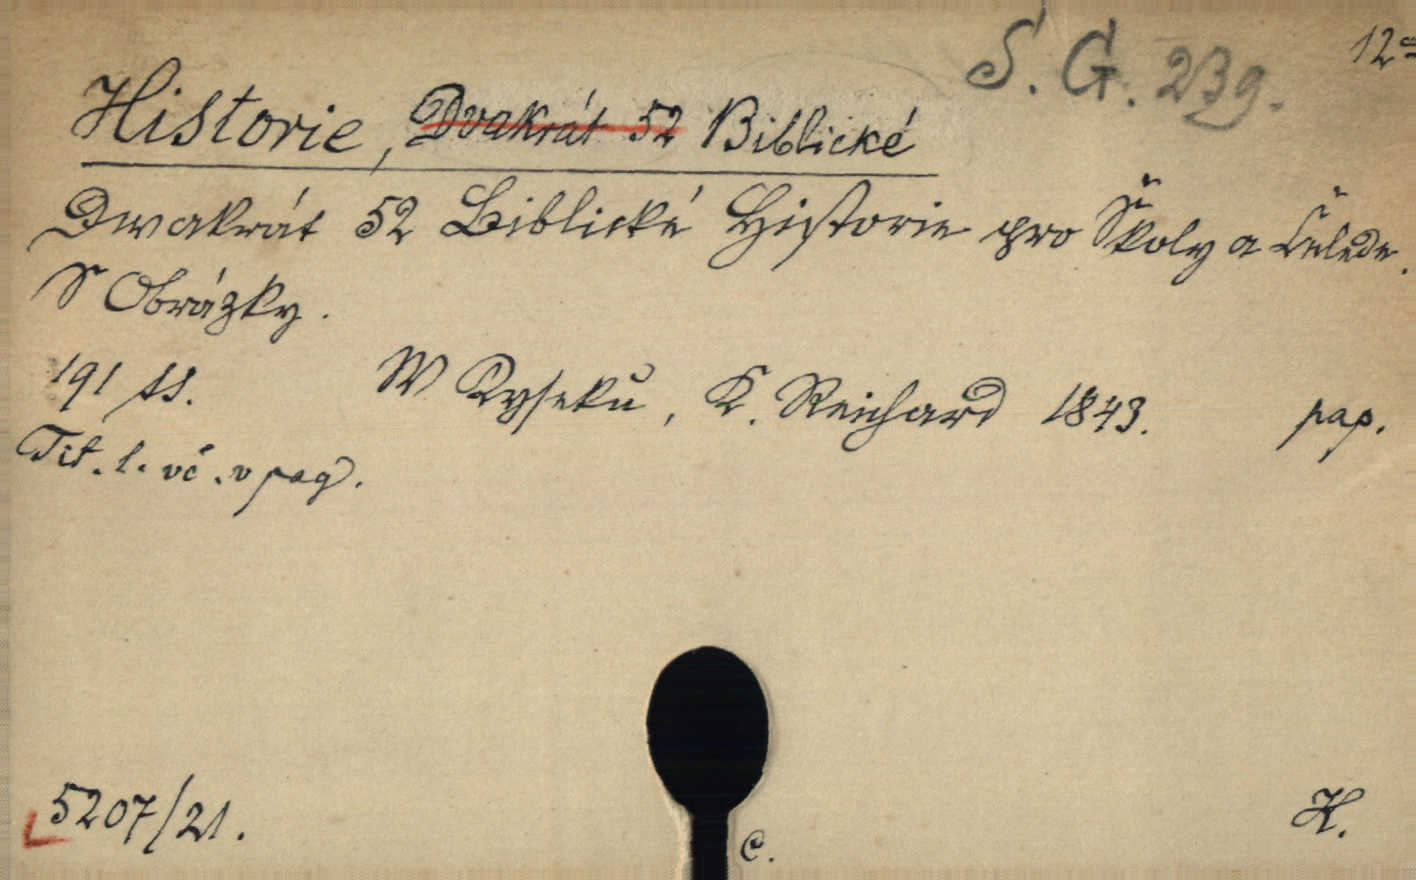 S. G. 239.
12°
Historie, Dvakrát 52 Biblické
Dwakrát 52 Biblické Historie pro Školy a Čeledе.
S Obrázky.
191 ss. W Kyseku, K. Reichard 1843. pap.
Tit. l. vč. v pag.
5207/21.
C.
H.